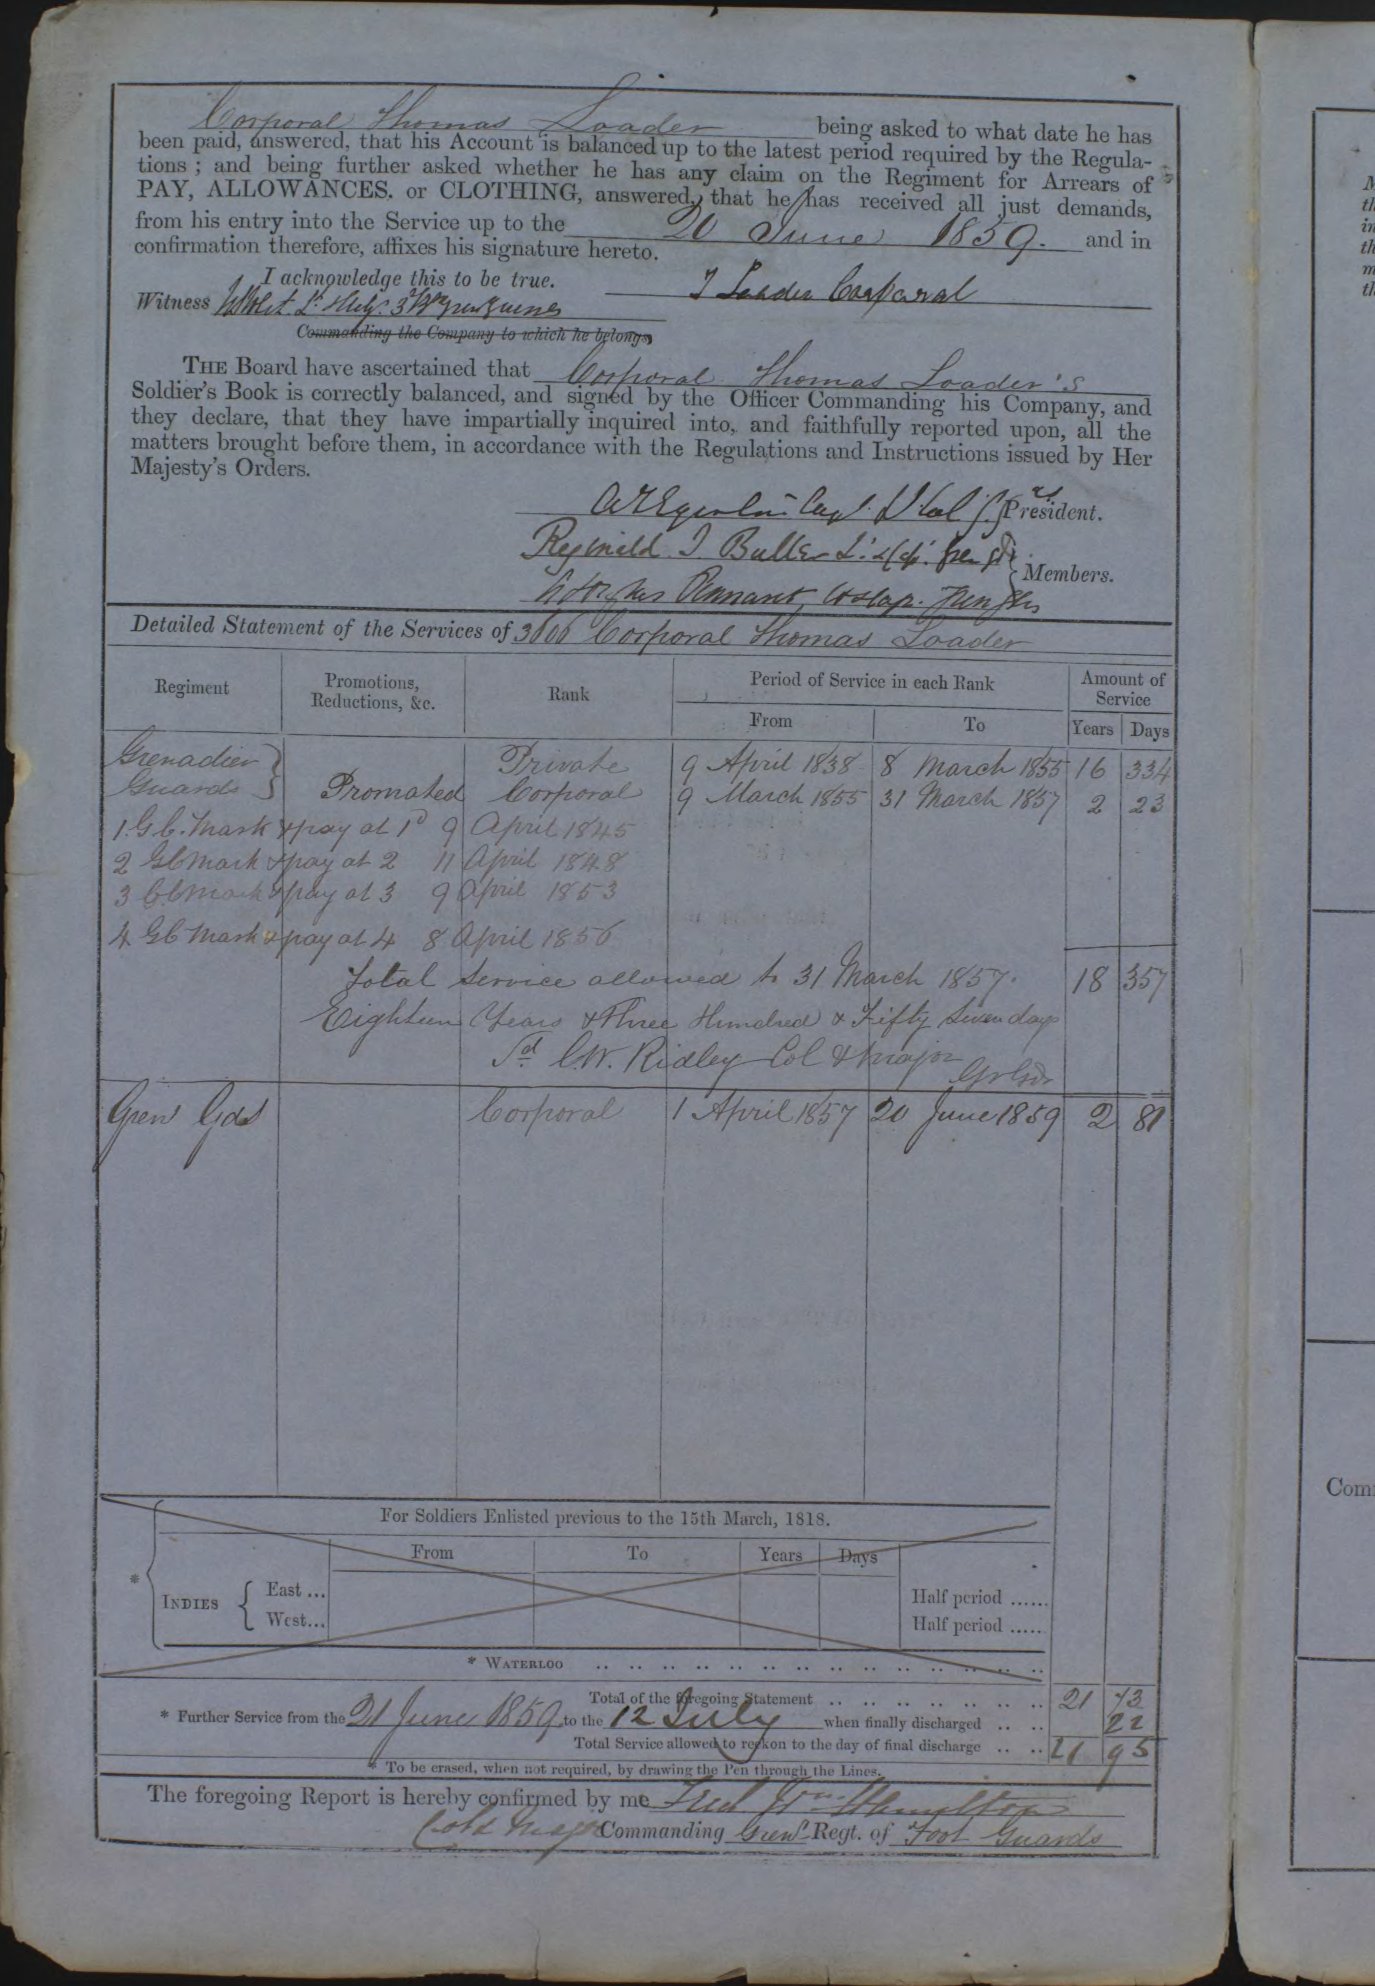 Corporal Thomas Loader being asked to what date he has
been paid, answered, that his Account is balanced up to the latest period required by the Regula-
tions ; and being further asked whether he has any claim on the Regiment for Arrears of
PAY, ALLOWANCES. or CLOTHING, answered, that he has received all just demands,
from his entry into the Service up to the 20 June 1859. and in
confirmation therefore, affixes his signature hereto.
I acknowledge this to be true. T Loader Corporal
Witness
Commanding the Company to which he belongs,
THE Board have ascertained that Corporal Thomas Loader's
Soldier's Book is correctly balanced, and signed by the Officer Commanding his Company, and
they declare, that they have impartially inquired into, and faithfully reported upon, all the
matters brought before them, in accordance with the Regulations and Instructions issued by Her
Majesty's Orders.
President.
Reginald I Buller
Members.
Pennant
Detailed Statement of the Services of 3606 Corporal Thomas Loader
Regiment Promotions, Reductions, &c. Rank Period of Service in each Rank Amount of Service
From To Years Days
Grenadier Private 9 April 1838 8 March 1855 16 334
Guards Promoted Corporal 9 March 1855 31 March 1857 2 23
1 G.C. Mark & pay at 1d 9 April 1845
2 GC Mark & pay at 2 11 April 1848
3 G.C Mark & pay at 3 9 April 1853
4 GC Mark & pay at 4 8 April 1856
Total Service allowed to 31 March 1857. 18 357
Eighteen Years & Three Hundred & Fifty Seven days
Sd C.W. Ridley Col & Major
Gr Gds
Gren Gds Corporal 1 April 1857 20 June 1859 2 81
For Soldiers Enlisted previous to the 15th March, 1818.
From To Years Days
* INDIES
East ... Half period ......
West... Half period ......
* WATERLOO .. .. .. .. .. .. .. .. .. .. .. .. .. ..
Total of the foregoing Statement .. .. .. .. .. .. .. 21 73
* Further Service from the 21 June 1859 to the 12 July when finally discharged .. .. 22
Total Service allowed to reckon to the day of final discharge .. .. 21 95
* To be erased, when not required, by drawing the Pen through the Lines.
The foregoing Report is hereby confirmed by me Fred Wm Hamilton
Col & Major Commanding Gren Regt. of Foot Guards
Com